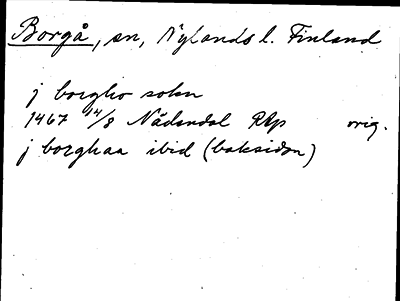 Borgå, sn, Nylands l. Finland
j borgho sokn
1467 14/8 Nådendal RAp orig.
j borghaa ibid (baksidan)